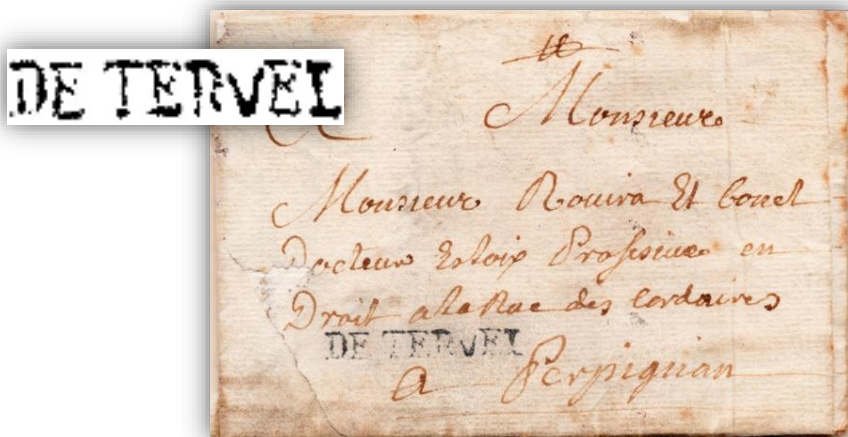 DE TERVEL
A Monsieur
Monsieur Rouira Et bonet
Docteur Es loix Profeseur en
Droit a la Rue des Cordaires
DE TERVEL
a Perpignan